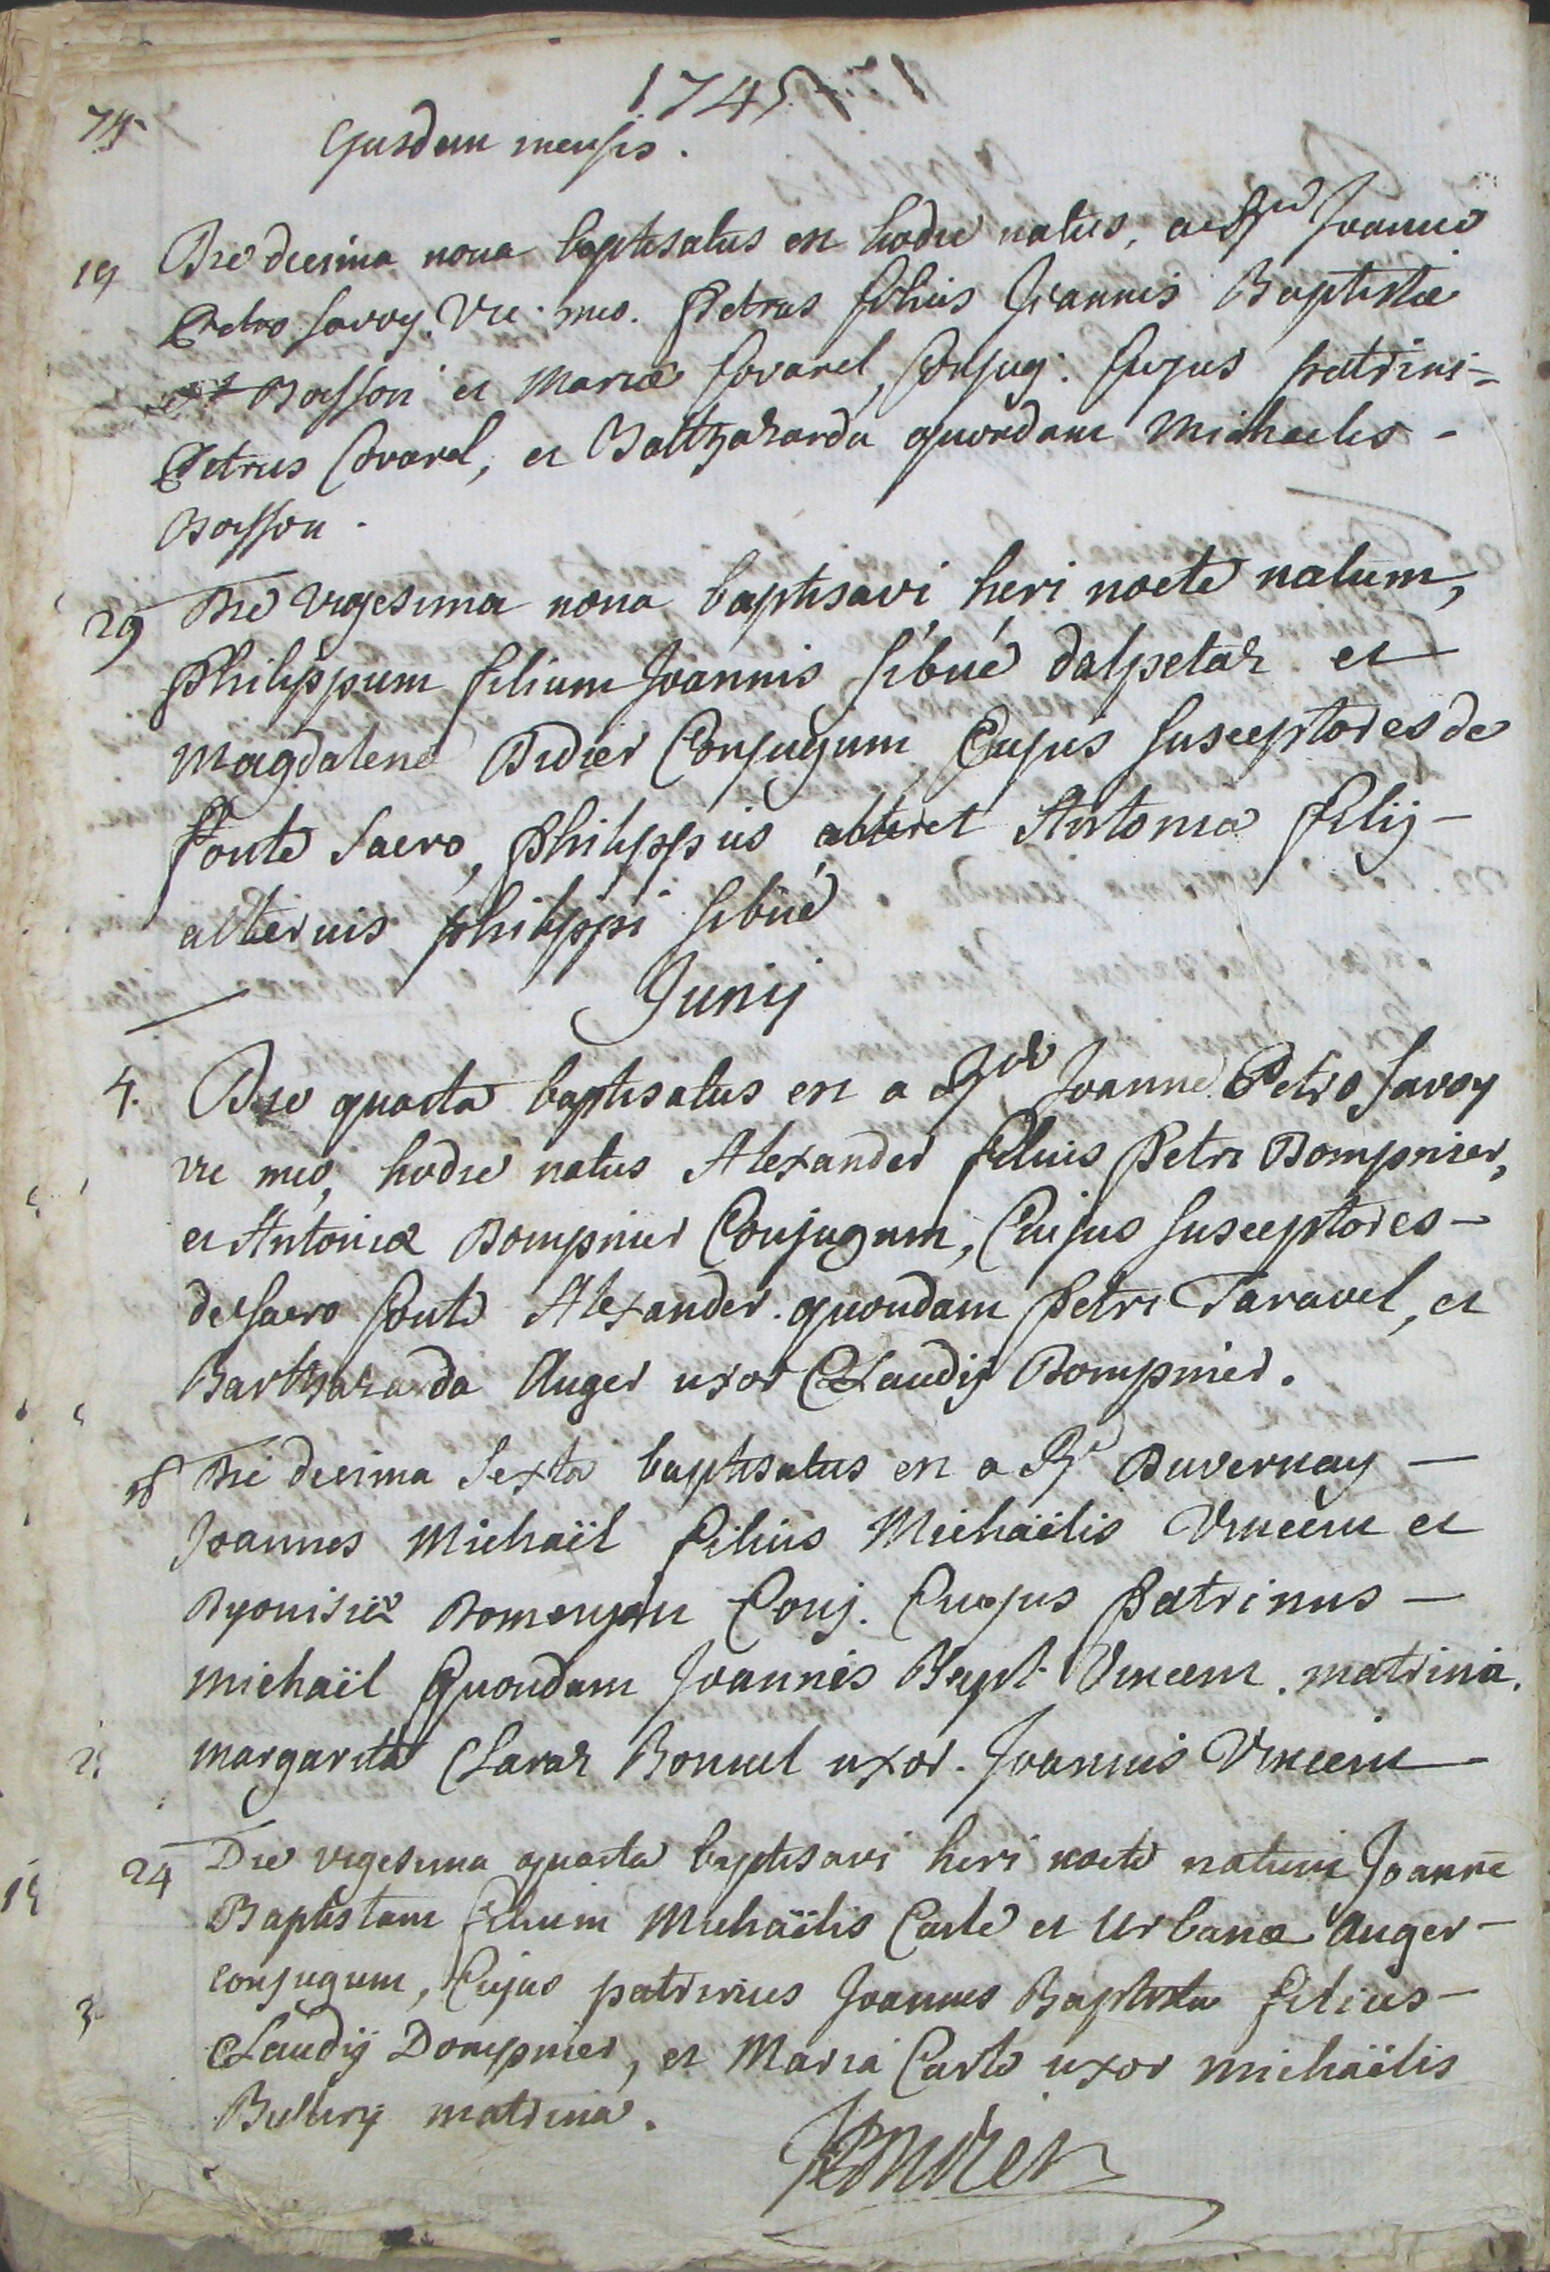 1745
74
Ejusdem mensis.
19 Die decima nona baptisatus est hodie natus, a Rdo Joanne
Petro Savoy. Vic. meo. Petrus filius Joannis Baptistæ
Bosson et Mariæ Covarel, Conjug. Cujus patrini
Petrus Covarel, et Baltzazarda quondam Michaelis -
Bosson.
29 Die vigesima nona baptisavi heri nocte natum,
Philippum filium Joannis Sibué dalpetaz et
Magdalene Didier Conjugum, Cujus susceptores de
Fonte Sacro, Philippus et Antonia filij -
alterius Philippi Sibué
Junij
4. Die quarta baptisatus est a Rdo Joanne Petro Savoy
vic meo, hodie natus Alexander filius Petri Dompnier,
et Antoniæ Dompnier Conjugum, Cujus susceptores -
de Sacro fonte Alexander quondam Petri Taravel, et
Barthazarda Auger uxor Claudij Dompnier.
16 Die decima Sexta baptisatus est a Rd Duvernay -
Joannes Michaël filius Michaëlis Vincent et
Dyonisiæ Conj. Cujus Patrinus -
Michaël Quondam Joannis Bapt Vincent. matrina.
Margarita Claraz Bonnel uxor. Joannis Vincent
24 Die vigesima quarta baptisavi heri nocte natum Joanne
Baptistam filium Michaëlis Carle et Urbanæ Auger -
conjugum, Cujus patrinus Joannes Baptista filius -
Claudij Dompnier, et Maria Carle uxor Michaëlis
matrina.